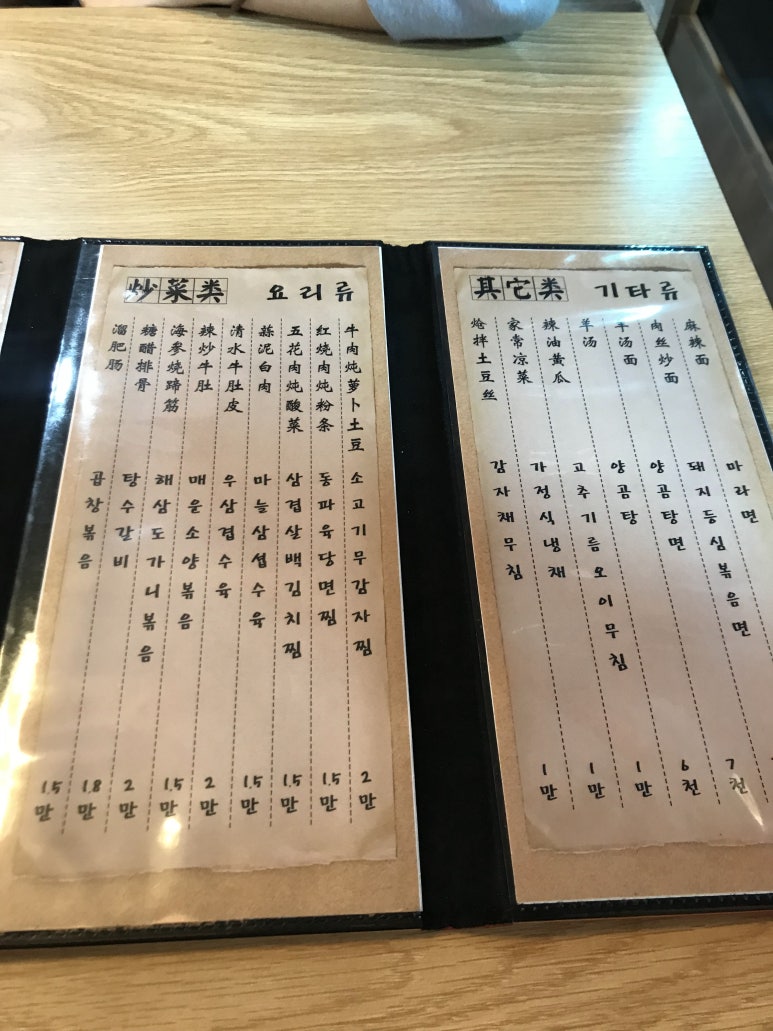 炒菜类 요리류
溜肥肠
곱창볶음
1.5만
糖醋排骨
탕수갈비
1.8만
海参烧蹄筋
해삼도가니볶음
2만
辣炒牛肚
매운소양볶음
1.5만
清水牛肚皮
우삼겹수육
2만
蒜泥白肉
마늘삼섭수육
1.5만
五花肉炖酸菜
삼겹살백김치찜
1.5만
红烧肉炖粉条
동파육당면찜
1.5만
牛肉炖萝卜土豆
소고기무감자찜
2만
其它类 기타류
炝拌土豆丝
감자채무침
1만
家常凉菜
가정식냉채
1만
辣油黄瓜
고추기름오이무침
1만
羊汤
양곰탕
6천
羊汤面
양곰탕면
7천
肉丝炒面
돼지등심볶음면
麻辣面
마라면